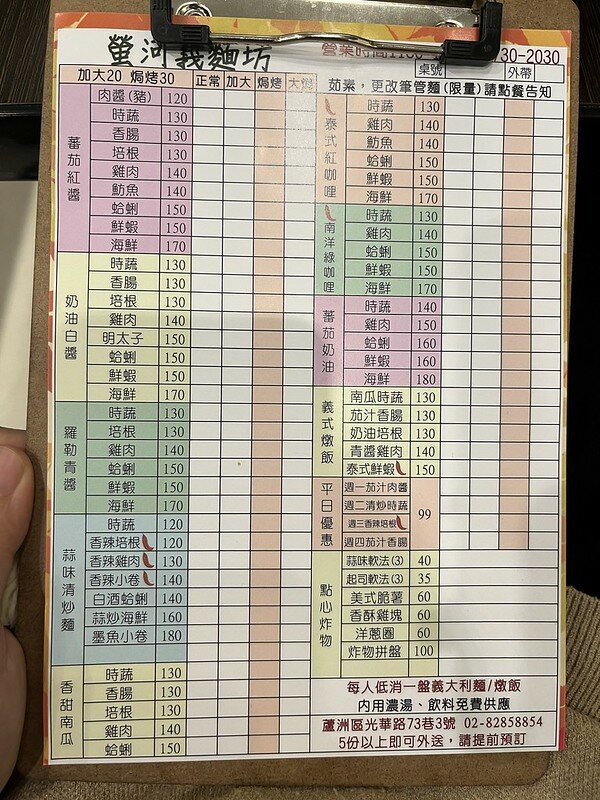 螢河義麵坊
營業時間
730-2030
桌號
外帶
加大20 焗烤30 正常 加大 焗烤 大焗
茹素，更改筆管麵(限量)請點餐告知
蕃茄紅醬
肉醬(豬) 120
時蔬 130
香腸 130
培根 130
雞肉 140
魴魚 140
蛤蜊 150
鮮蝦 150
海鮮 170
奶油白醬
時蔬 130
香腸 130
培根 130
雞肉 140
明太子 150
蛤蜊 150
鮮蝦 150
海鮮 170
羅勒青醬
時蔬 130
培根 130
雞肉 140
蛤蜊 150
鮮蝦 150
海鮮 170
蒜味清炒麵
時蔬 120
香辣培根 120
香辣雞肉 130
香辣小卷 140
白酒蛤蜊 140
蒜炒海鮮 160
墨魚小卷 180
香甜南瓜
時蔬 130
香腸 130
培根 130
雞肉 140
蛤蜊 150
泰式紅咖哩
時蔬 130
雞肉 140
魴魚 140
蛤蜊 150
鮮蝦 150
海鮮 170
南洋綠咖哩
時蔬 130
雞肉 140
蛤蜊 150
鮮蝦 150
海鮮 170
蕃茄奶油
時蔬 140
雞肉 150
蛤蜊 160
鮮蝦 160
海鮮 180
義式燉飯
南瓜時蔬 130
茄汁香腸 130
奶油培根 130
青醬雞肉 140
泰式鮮蝦 150
平日優惠
週一茄汁肉醬
週二清炒時蔬
週三香辣培根
週四茄汁香腸
99
點心炸物
蒜味軟法(3) 40
起司軟法(3) 35
美式脆薯 60
香酥雞塊 60
洋蔥圈 60
炸物拼盤 100
每人低消一盤義大利麵/燉飯
內用濃湯、飲料免費供應
蘆洲區光華路73巷3號 02-82858854
5份以上即可外送，請提前預訂